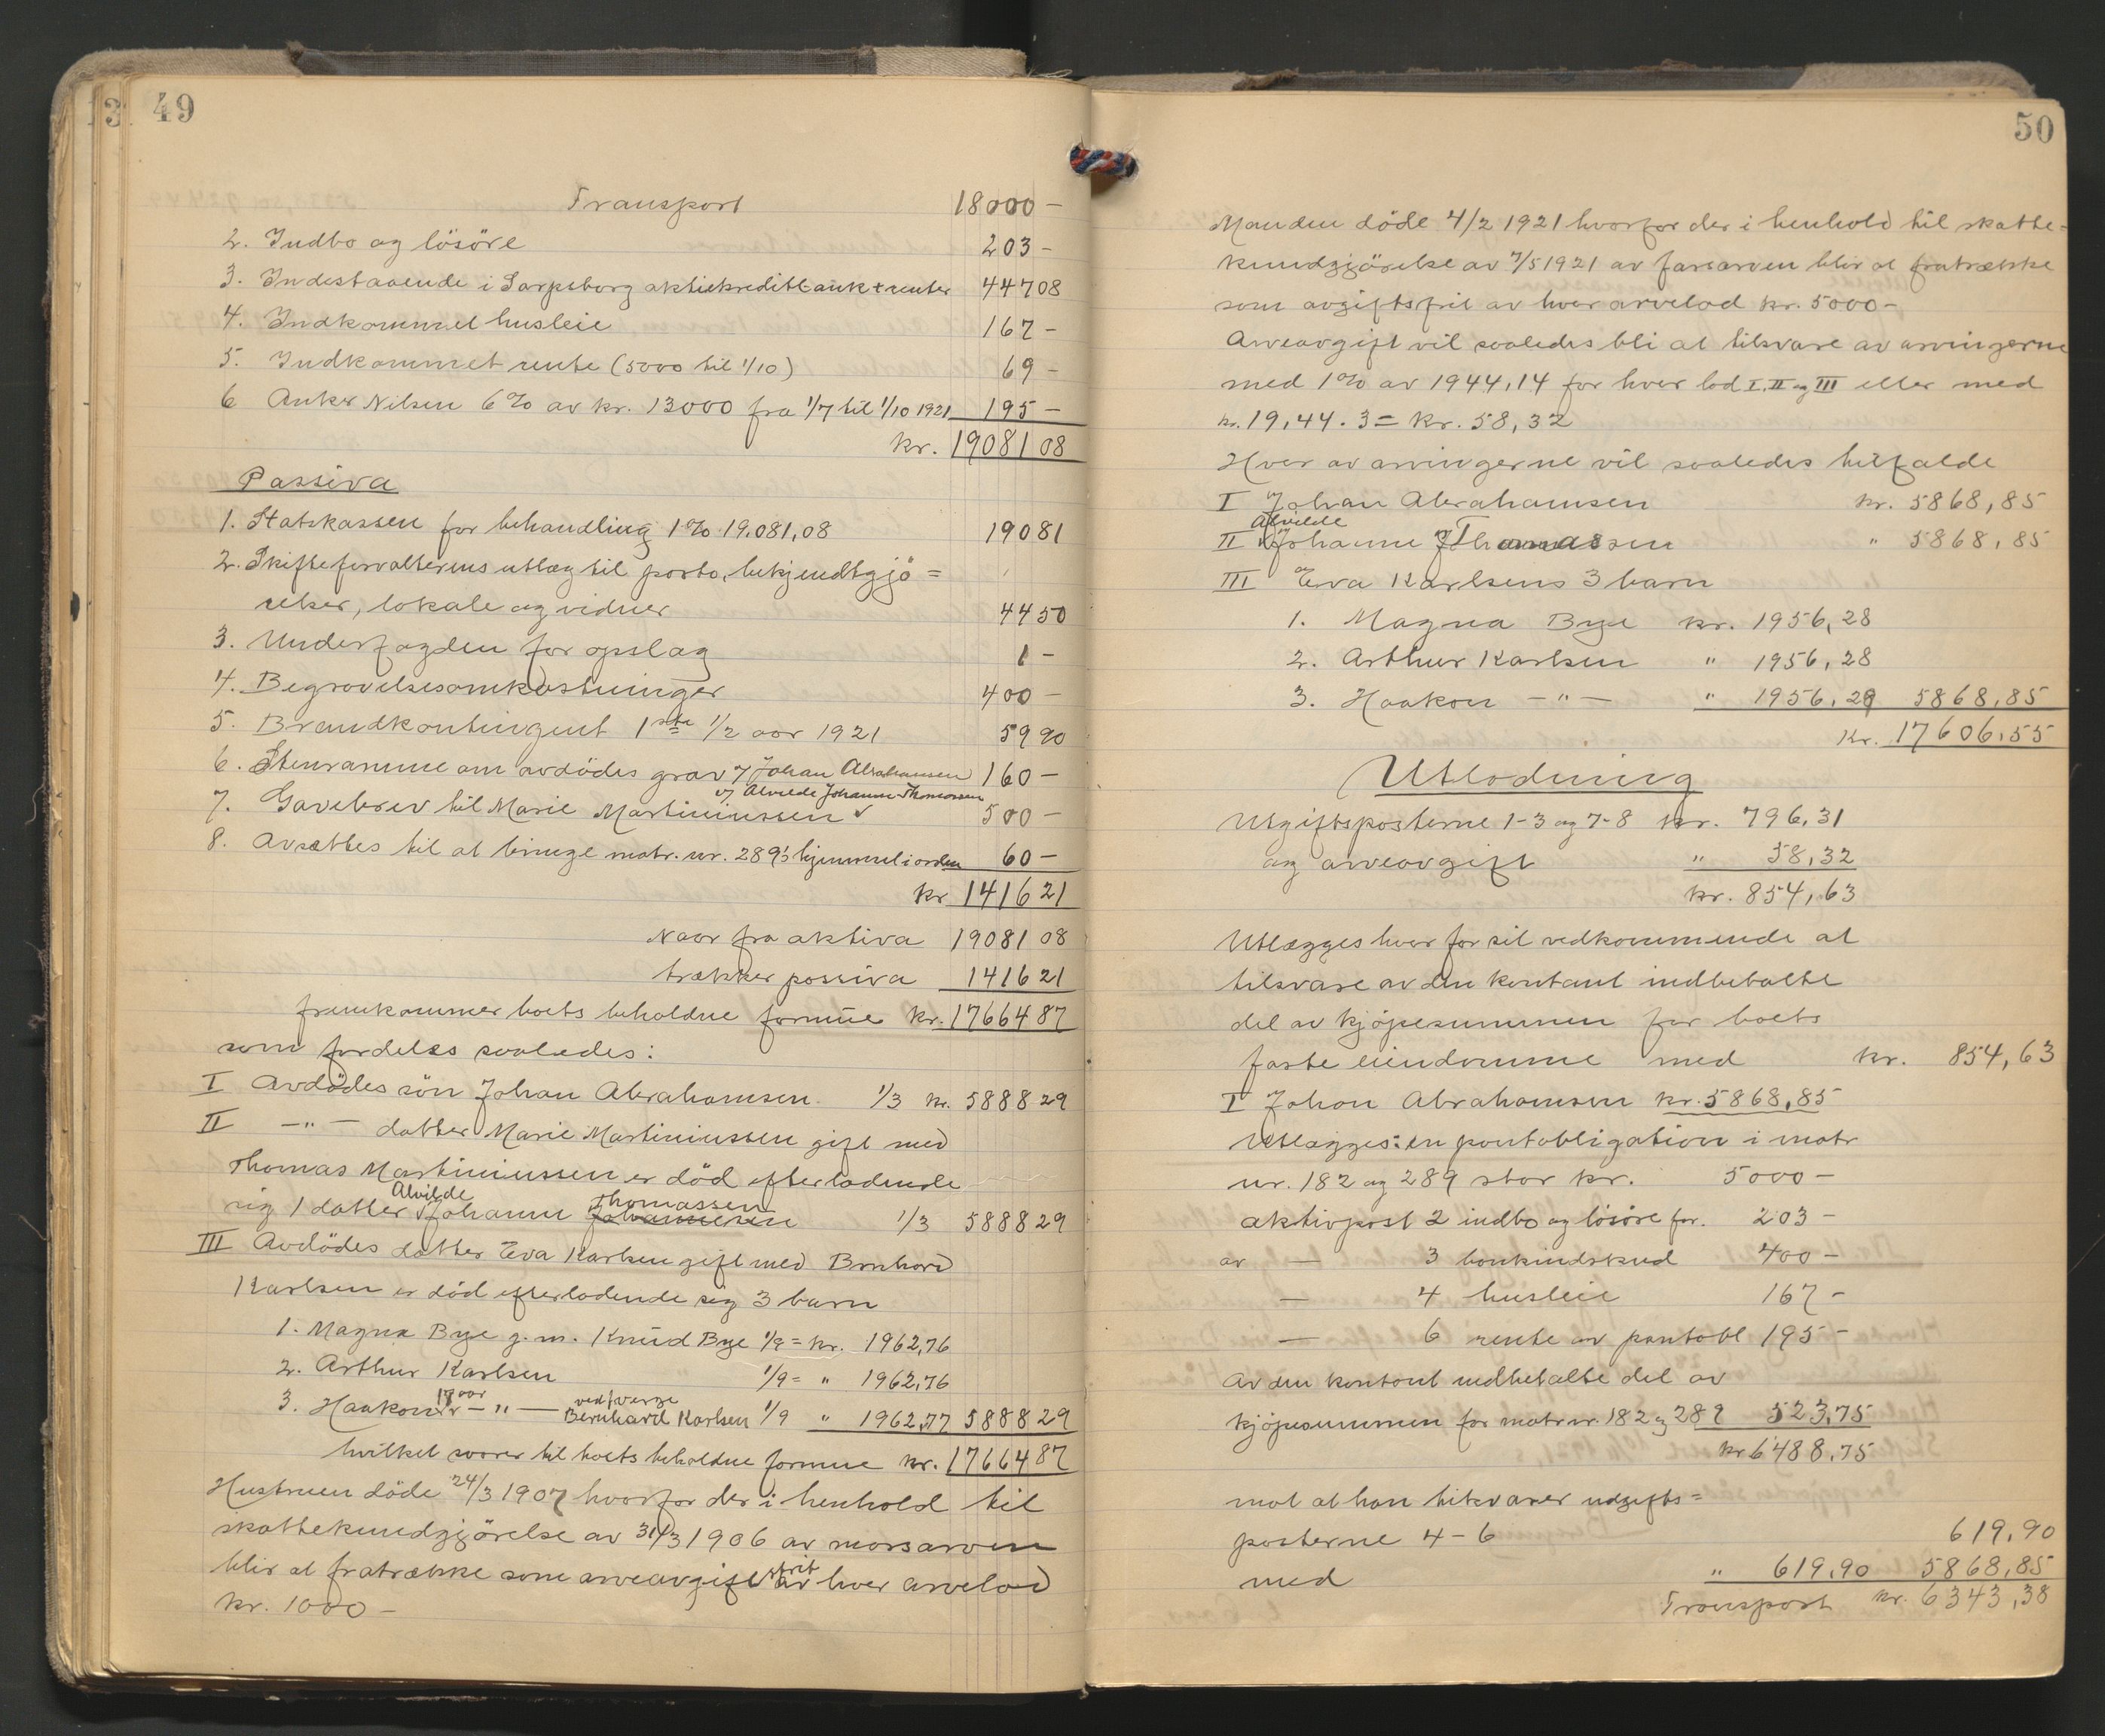 3 49
Transport 18000 -
2. Indbo og lösöre 203 -
3. Indestaaende i Sarpsborg aktiekreditbank + renter 447 08
4. Indkommet husleie 167 -
5. Indkommet rente (5000 til 1/10) 69 -
6 Anker Nilsen 6% av kr. 13000 fra 1/7 til 1/10 1921 195 -
kr. 19081 08
Passiva
1. Statskassen for behandling 1% 19.081,08 190 81
2. Skifteforvalterens utlæg til porto, bekjendtgjö=
relser, lokale og vidner 44 50
3. Underfogden for opslag 1 -
4. Begravelsesomkostninger 400 -
5. Brandkontingent 1ste 1/2 aar 1921 59 90
6. Stenramme om avdödes grav v/ Johan Abrahamsen 160 -
v/ Alvilde Johanne Thomassen
7. Gavebrev til Marie Martiniussen 500 -
8. Avsættes til at bringe matr. nr. 289's hjemmel i orden 60 -
kr 1416 21
Naar fra aktiva 19081 08
trækker passiva 1416 21
fremkommer boets beholdne formue kr. 17664 87
som fordeles saaledes:
I Avdödes sön Johan Abrahamsen. 1/3 kr. 5888 29
II -"- datter Marie Martiniussen gift med
Thomas Martiniussen er död efterladende
Alvilde Thomassen
sig 1 datter Johanne Johannesen 1/3 5888 29
III Avdödes datter Eva Karlsen gift med Bernhard
Karlsen er död efterladende sig 3 barn
1. Magna Bye g. m. Knud Bye 1/9 = kr. 1962,76
2. Arthur Karlsen 1/9 = " 1962,76
17 aar ved verge
3. Haakon -"- Bernhard Karlsen 1/9 " 1962,77 5888 29
hvilket svarer til boets beholdne formue kr. 17664 87
Hustruen döde 24/3 1907 hvorfor der i henhold til
skattekundgjörelse av 31/3 1906 av morsarven
blir at fratrække som arveavgiftsfrit av hver arvelod
kr. 1000 -
50
Manden döde 4/2 1921 hvorfor der i henhold til skatte-
kundgjörelse av 7/5 1921 av farsarven blir at fratrække
som avgiftsfrit av hver arvelod kr. 5000 -
Arveavgift vil saaledes bli at tilsvare av arvingerne
med 1% av 1944,14 for hver lod I, II og III eller med
kr. 19,44 . 3 = kr. 58,32
Hver av arvingerne vil saaledes tilfalde
I Johan Abrahamsen kr. 5868,85
Alvilde
II Johanne Thomassen " 5868,85
III Eva Karlsens 3 barn
1. Magna Bye kr. 1956,28
2. Arthur Karlsen " 1956,28
3. Haakon -"- " 1956,29 5868,85
Kr. 17606,55
Utlodning
Utgiftsposterne 1-3 og 7-8 kr. 796,31
og arveavgift " 58,32
kr. 854,63
Utlægges hver for sit vedkommende at
tilsvare av den kontant indbetalte
del av kjöpesummen for boets
faste eiendomme med kr. 854,63
I Johan Abrahamsen kr. 5868,85
Utlægges: en pantobligation i matr
nr. 182 og 289 stor kr. 5000 -
aktivpost 2 indbo og lösöre for. 203 -
av - 3 bankindskud 400 -
- 4 husleie 167 -
- 6 rente av pantobl 195 -
Av den kontant indbetalte del av
kjöpesummen for matr nr. 182 og 289 523,75
kr 6488,75
mot at han tilsvarer udgifts=
posterne 4-6 619,90
med " 619,90 5868,85
Transport kr. 6343,38